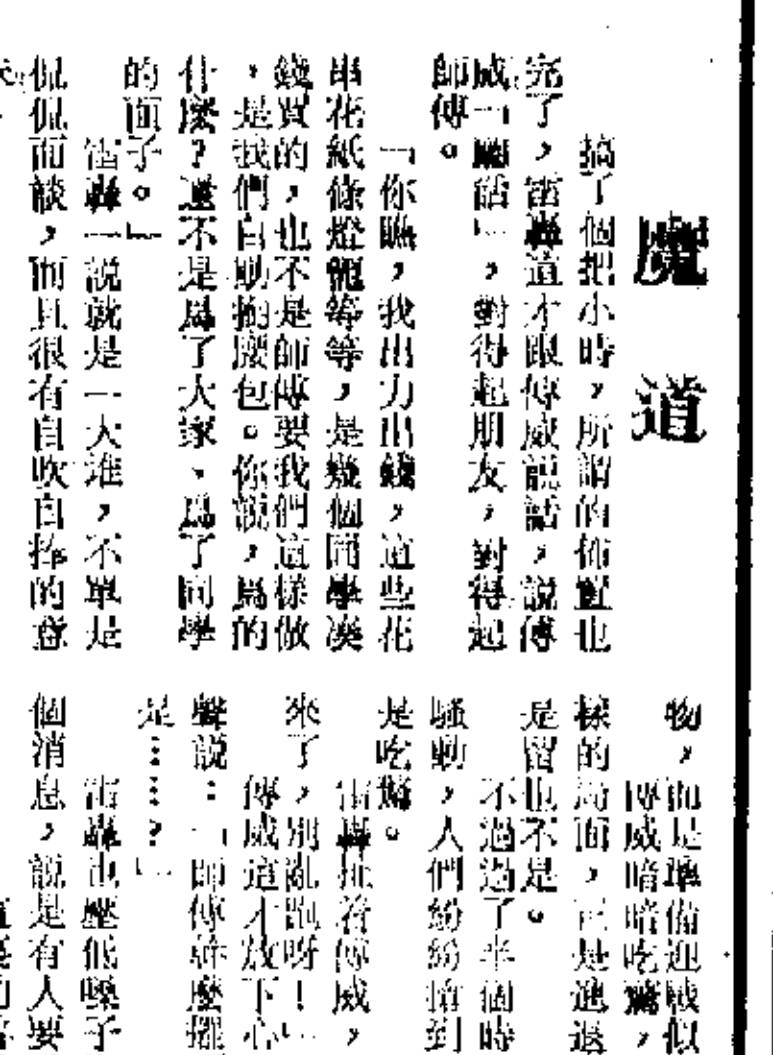 魔道
搞了個把小時，所謂的佈置也
完了，雷轟道才跟傅威說話，說傅
威「廢話」，對得起朋友，對得起
師傅。
「你瞧，我出力出錢，這些花
串花紙條燈籠等等，是幾個同學湊
錢買的，也不是師傅要我們這樣做
，是我們自動掏腰包。你說，爲的
什麼？還不是爲了大家、爲了同學
的面子。」
雷轟一說就是一大堆，不單是
侃侃而談，而且很有自吹自捧的意
物，而是準備迎戰似
傅威暗暗吃驚，
樣的局面，正是進退
是留也不是。
不過過了半個時
騷動，人們紛紛搶到
是吃驚。
雷轟拉着傅威，
來了，別亂跑呀！」
傅威這才放下心
聲說：「師傅幹麼擺
是……？」
雷轟也壓低嗓子
個消息，說是有人要